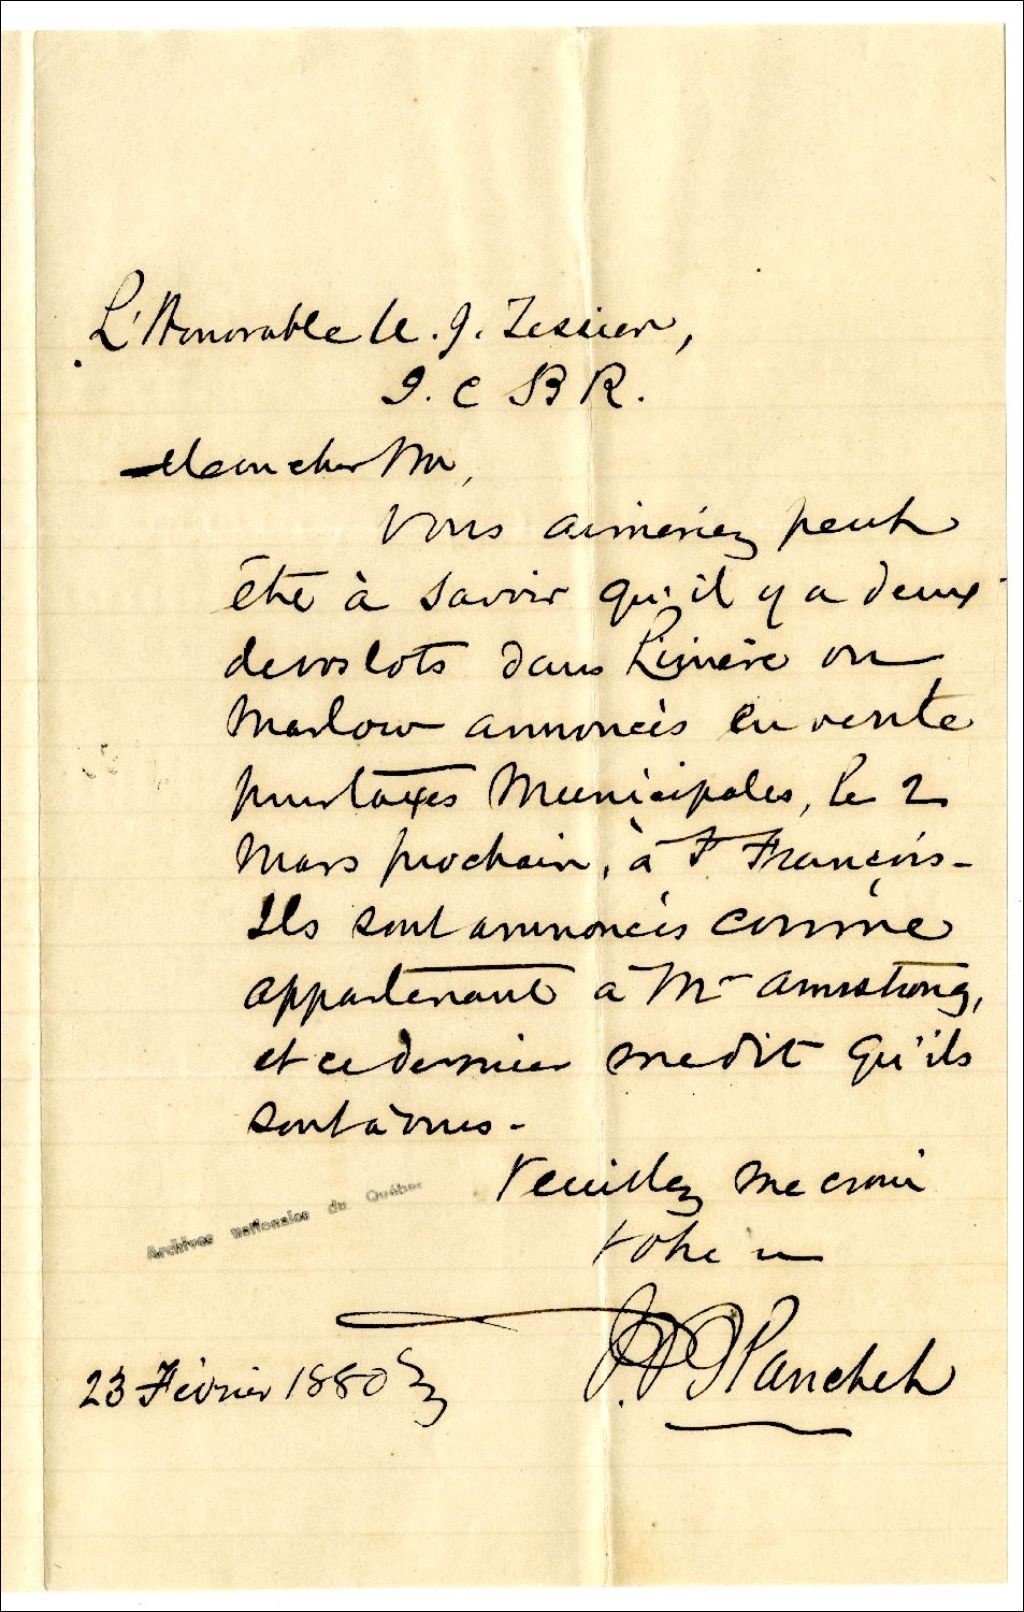 L'Honorable U. J. Tessier,
J. C B R.
Mon cher Mr,
Vous aimeriez peut
être à savoir qu'il y a deux
de vos lots dans Linière ou
Marlow annoncés en vente
pour taxes Municipales, le 2
Mars prochain, à St François-
Ils sont annoncés comme
appartenant à Mr Armstrong,
et ce dernier me dit qu'ils
sont à vous -
Veuillez me croire
votre
Archives nationales du Québec
23 Février 1880
Blanchet